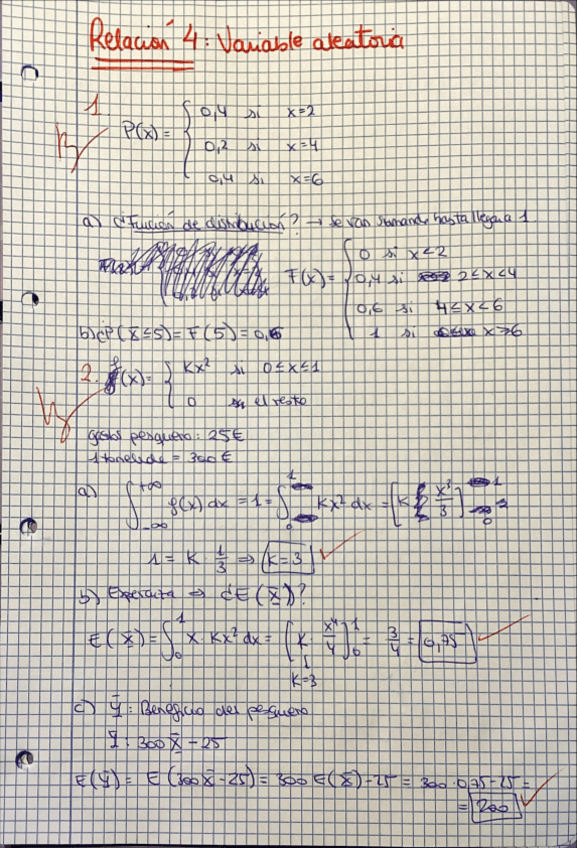 Relación 4: Variable aleatoria
1.
P(x) = { 0,4 si x=2
0,2 si x=4
0,4 si x=6
a) ¿Función de distribución? → se van sumando hasta llegar a 1
F(x) = { 0 si x<2
0,4 si 2≤x<4
0,6 si 4≤x<6
1 si x≥6
b) ¿P(X≤5) = F(5) = 0,6
2. f(x) = { Kx² si 0≤x≤1
0 el resto
gastos pesquero: 25€
1 tonelada = 300€
a) ∫_{-∞}^{+∞} f(x) dx = 1 = ∫_0^1 Kx² dx = [K x³/3]
1 = K · 1/3 ⇒ K=3
b) Esperanza ⇒ ¿E(X)?
E(X) = ∫_0^1 x · Kx² dx = [K · x⁴/4]_0^1 = 3/4 = 0,75
K=3
c) Y: Beneficio del pesquero
Y: 300X - 25
E(Y) = E(300X - 25) = 300E(X) - 25 = 300 · 0,75 - 25 =
= 200